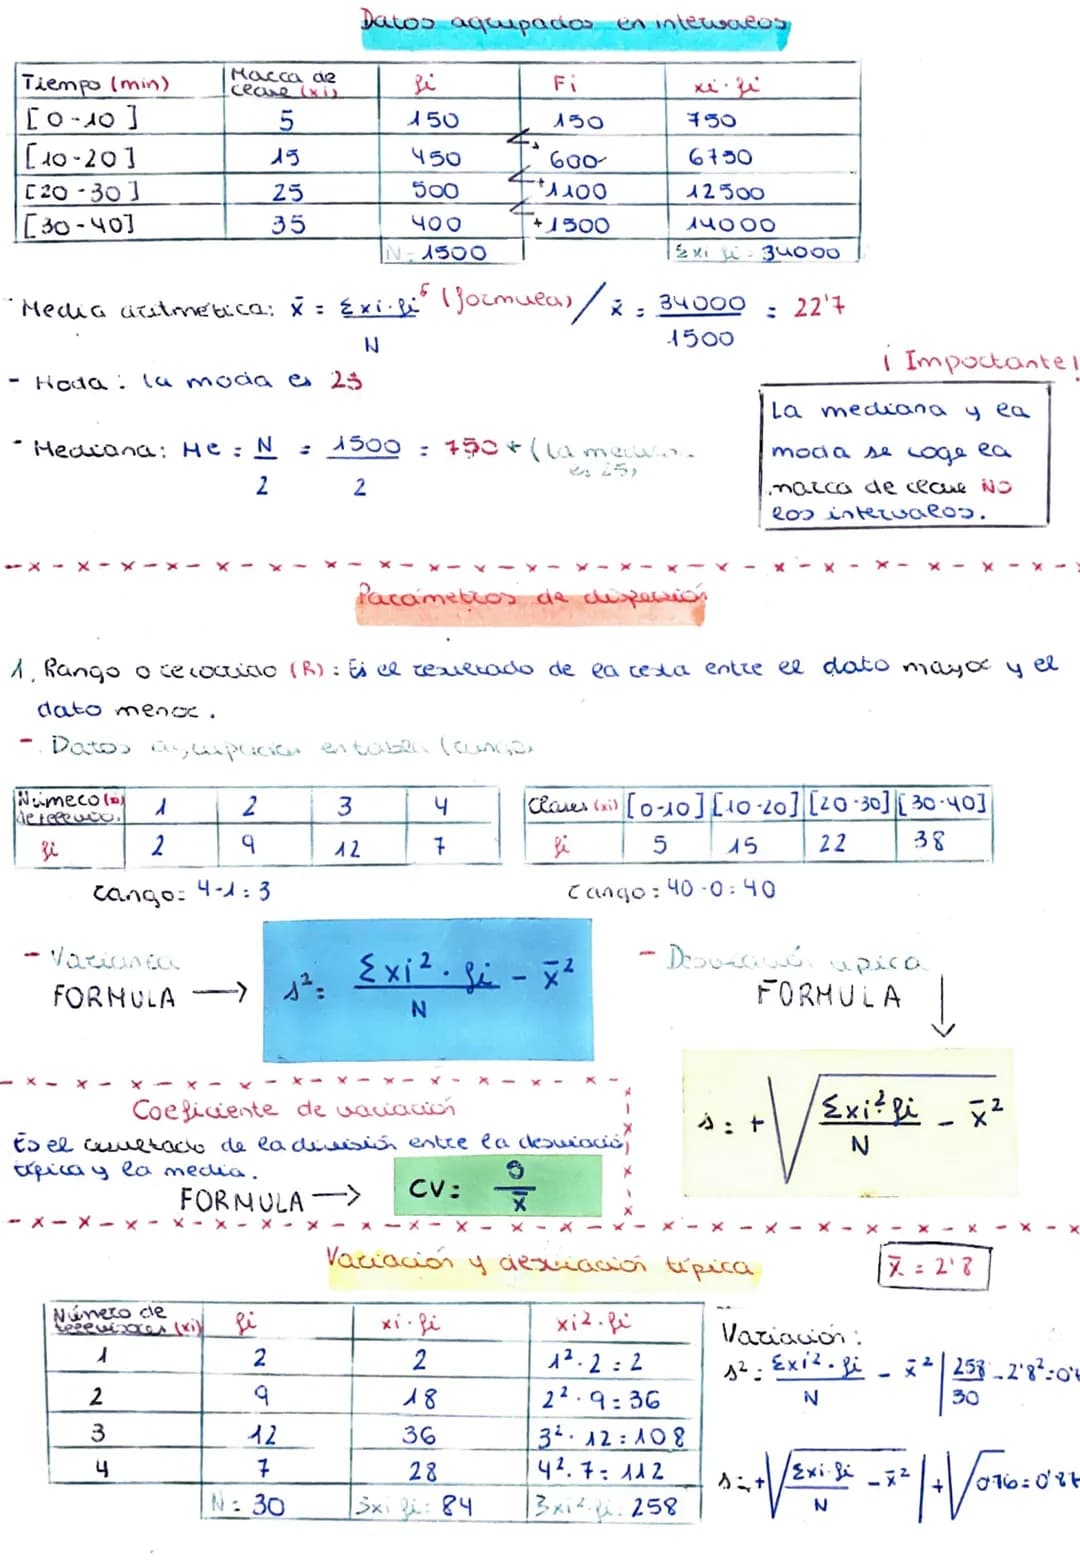 Datos agrupados en intervalos
Tiempo (min) Marca de clase (xi) fi Fi xi·fi
[0-10] 5 150 150 750
[10-20] 15 450 600 6750
[20-30] 25 500 +1100 12500
[30-40] 35 400 +1500 14000
N= 1500 Σxi fi = 34000
- Media aritmética: x̄ = Σxi·fi / N (formula) / x̄ = 34000 / 1500 = 22'7
- Moda: la moda es 25
¡Importante!
La mediana y la
moda se coge la
marca de clase NO
los intervalos.
- Mediana: Me = N/2 = 1500/2 = 750 * (la mediana
es 25)
Parámetros de dispersión
1. Rango o recorrido (R): Es el resultado de la resta entre el dato mayor y el
dato menor.
- Datos agrupados en tabla (rango)
Número (xi) 1 2 3 4
fi 2 9 12 7
rango= 4-1=3
Clases (xi) [0-10] [10-20] [20-30] [30-40]
fi 5 15 22 38
rango= 40-0=40
- Varianza
FORMULA → s² = Σxi²·fi / N - x̄²
- Desviación típica
FORMULA ↓
s= +√(Σxi² fi / N - x̄²)
Coeficiente de variación
Es el resultado de la división entre la desviación
típica y la media.
FORMULA → CV= s / x̄
Variación y desviación típica
x̄ = 2'8
Número de televisores (xi) fi xi·fi xi²·fi
1 2 2 1²·2=2
2 9 18 2²·9=36
3 12 36 3²·12=108
4 7 28 4²·7=112
N= 30 Σxi fi= 84 Σxi² fi= 258
Variación:
s² = Σxi²·fi / N - x̄² | 258 / 30 - 2'8² =
s= +√(Σxi·fi / N - x̄²) | +√0'76 =